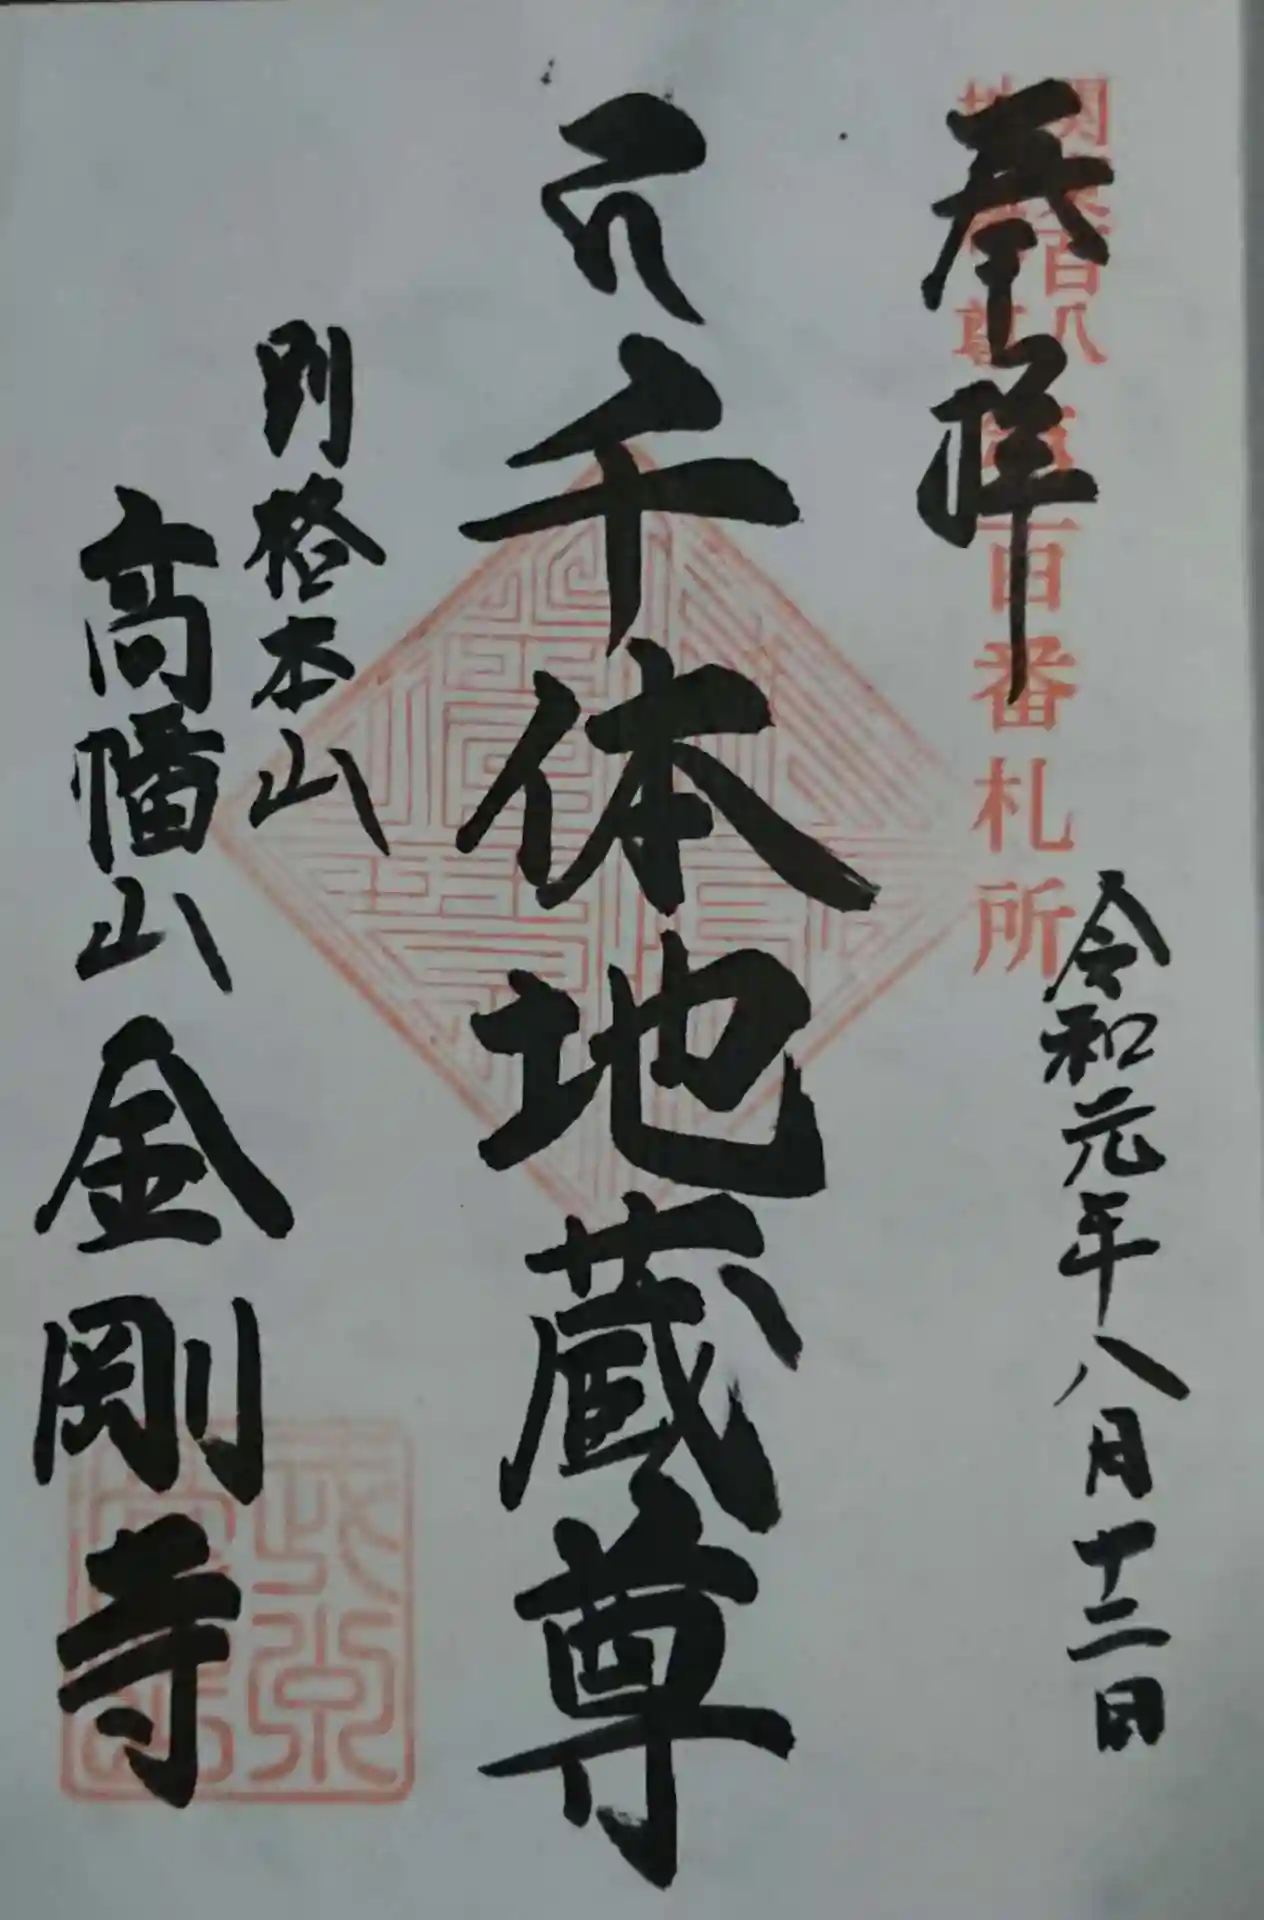 奉拝
関東百八
地蔵尊
百番札所
令和元年八月十二日
千体地蔵尊
別格本山
高幡山 金剛寺